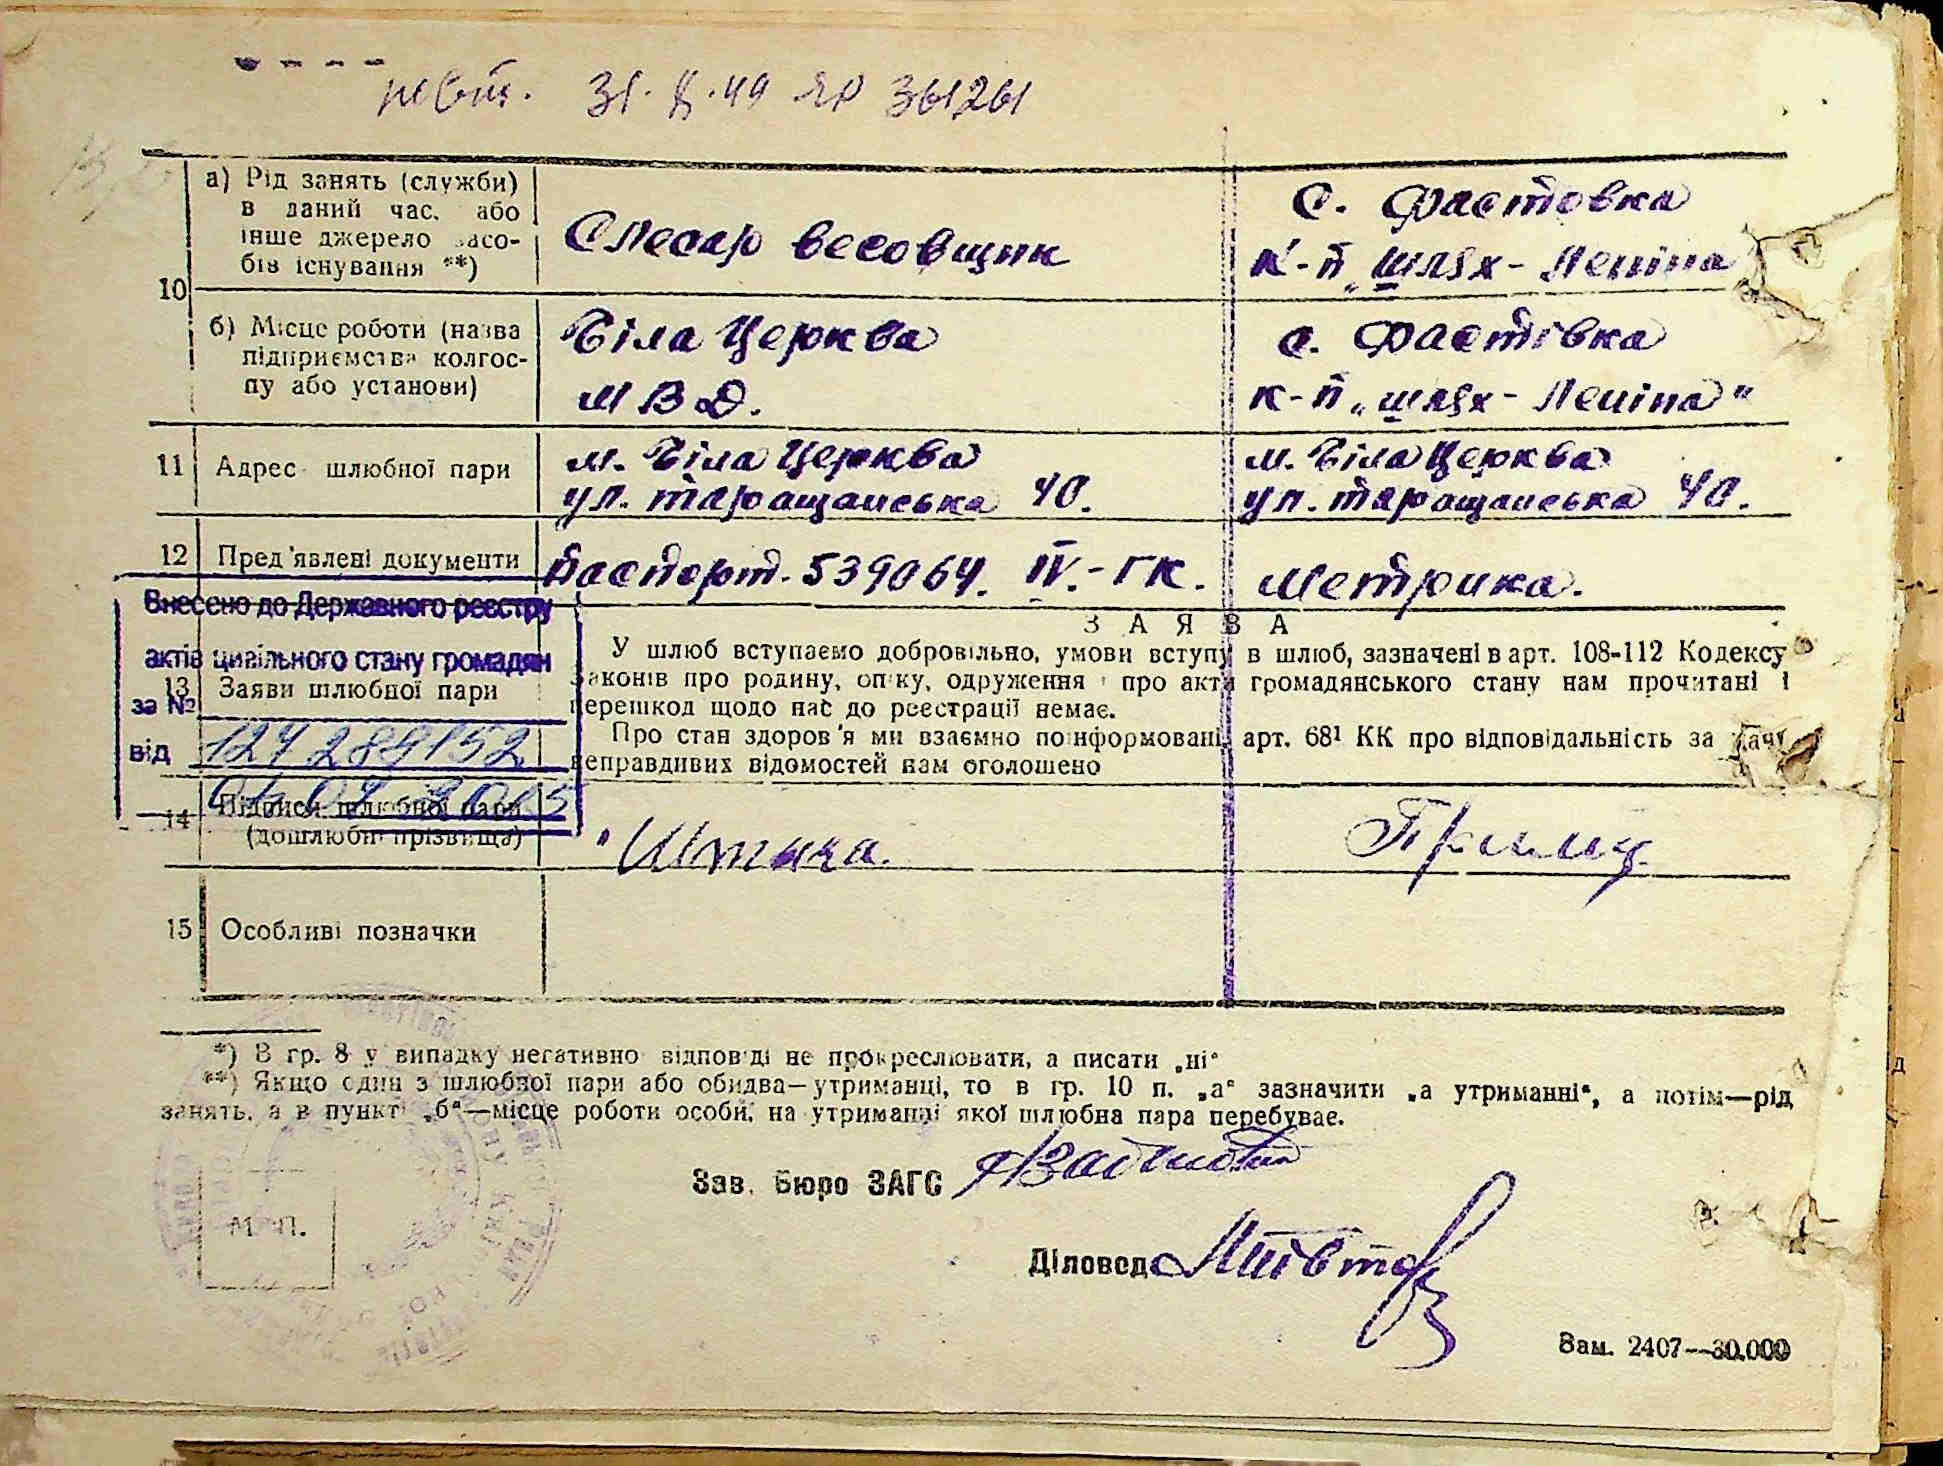 31. X. 49 ЯР 361261
а) Рід занять (служби)
в даний час, або
інше джерело засо-
бів існування **)
Слесар весовщик
с. Фастовка
к-п „шлях-Леніна
10
б) Місце роботи (назва
підприємства колгос-
пу або установи)
Біла Церква
М В Д.
с. Фастівка
к-п „шлях-Леніна"
11 Адрес шлюбної пари
м. Біла Церква
ул. таращанська 40.
м. Біла Церква
ул. таращанська 40.
12 Пред'явлені документи
Паспорт. 539064. IV.-ГК.
Метрика.
Внесено до Державного реєстру
актів цивільного стану громадян
за №
від
13 Заяви шлюбної пари
ЗАЯВА
У шлюб вступаємо добровільно, умови вступу в шлюб, зазначені в арт. 108-112 Кодексу
законів про родину, опіку, одруження і про акти громадянського стану нам прочитані і
перешкод щодо нас до реєстрації немає.
Про стан здоров'я ми взаємно поінформовані, арт. 68¹ КК про відповідальність за дачу
неправдивих відомостей нам оголошено
14 Підписи шлюбної пари
(дошлюбні прізвища)
15 Особливі позначки
*) В гр. 8 у випадку негативно відповіді не прокреслювати, а писати „ні"
**) Якщо один з шлюбної пари або обидва—утриманці, то в гр. 10 п. „а" зазначити „а утриманні", а потім—рід
занять, а в пункті „б"—місце роботи особи, на утриманні якої шлюбна пара перебуває.
Зав. Бюро ЗАГС
М. П.
Діловод
Зам. 2407—30.000